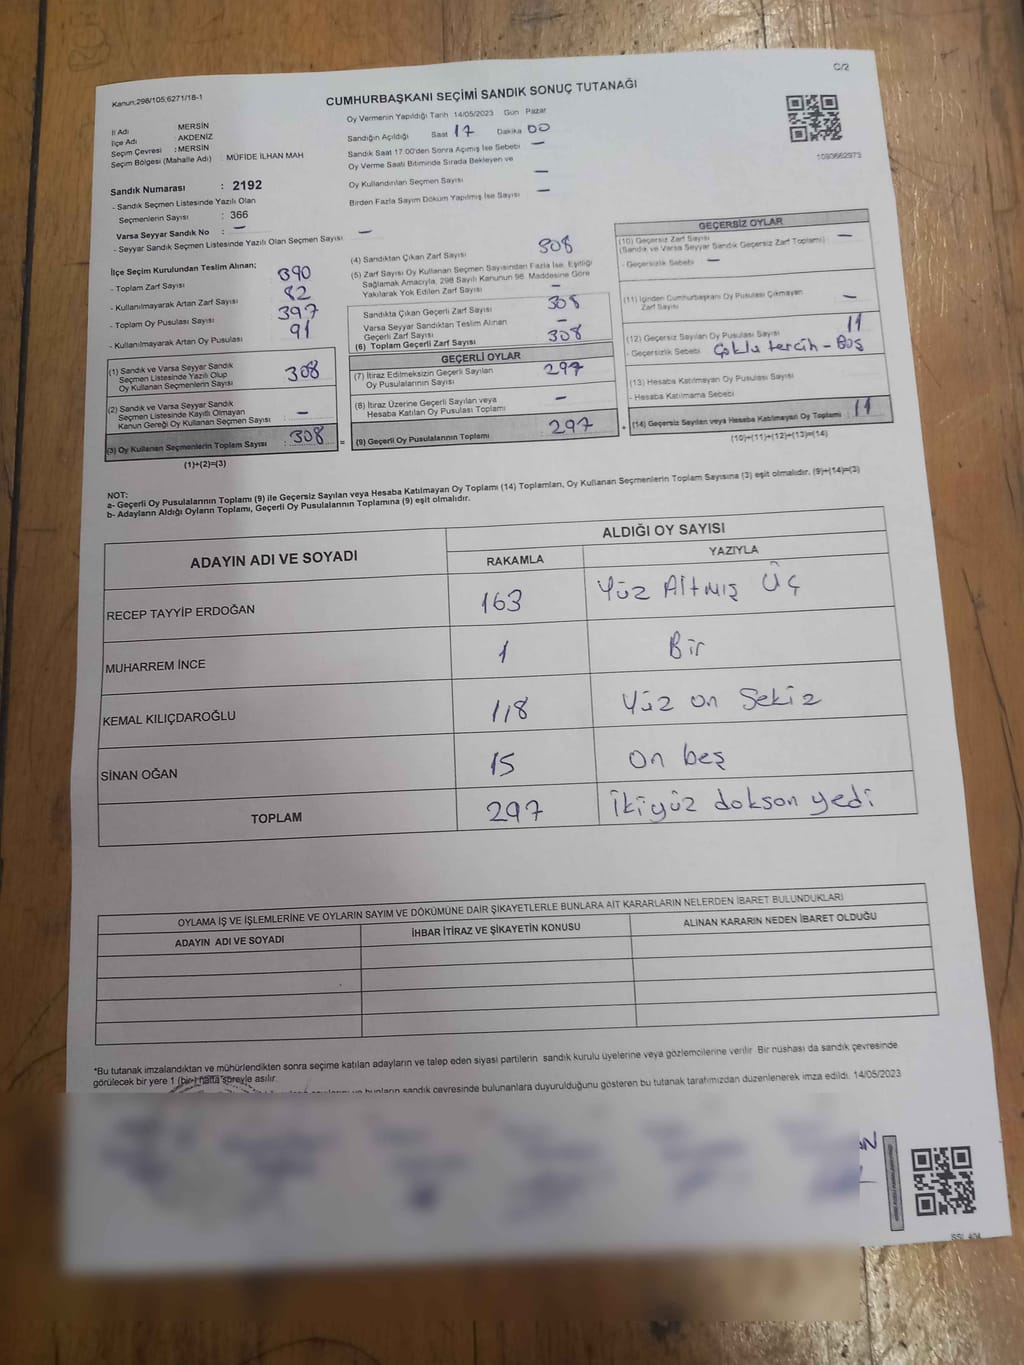 C/2
Kanun:298/105;6271/18-1
CUMHURBAŞKANI SEÇİMİ SANDIK SONUÇ TUTANAĞI
İl Adı : MERSİN
İlçe Adı : AKDENİZ
Seçim Çevresi : MERSİN
Seçim Bölgesi (Mahalle Adı) : MÜFİDE İLHAN MAH
Sandık Numarası : 2192
- Sandık Seçmen Listesinde Yazılı Olan
Seçmenlerin Sayısı : 366
Varsa Seyyar Sandık No : –
- Seyyar Sandık Seçmen Listesinde Yazılı Olan Seçmen Sayısı –
Oy Vermenin Yapıldığı Tarih 14/05/2023 Gün Pazar
Sandığın Açıldığı Saat 17 Dakika 00
Sandık Saat 17.00'den Sonra Açımış İse Sebebi –
Oy Verme Saati Bitiminde Sırada Bekleyen ve
Oy Kullandırılan Seçmen Sayısı –
Birden Fazla Sayım Döküm Yapılmış İse Sayısı –
1090662973
İlçe Seçim Kurulundan Teslim Alınan;
- Toplam Zarf Sayısı 390
- Kullanılmayarak Artan Zarf Sayısı 82
- Toplam Oy Pusulası Sayısı 397
- Kullanılmayarak Artan Oy Pusulası 91
(1) Sandık ve Varsa Seyyar Sandık
Seçmen Listesinde Yazılı Olup
Oy Kullanan Seçmenlerin Sayısı : 308
(2) Sandık ve Varsa Seyyar Sandık
Seçmen Listesinde Kayıtlı Olmayan
Kanun Gereği Oy Kullanan Seçmen Sayısı : –
(3) Oy Kullanan Seçmenlerin Toplam Sayısı : 308
(1)+(2)=(3)
(4) Sandıktan Çıkan Zarf Sayısı 308
(5) Zarf Sayısı Oy Kullanan Seçmen Sayısından Fazla İse, Eşitliği
Sağlamak Amacıyla, 298 Sayılı Kanunun 98. Maddesine Göre
Yakılarak Yok Edilen Zarf Sayısı –
Sandıkta Çıkan Geçerli Zarf Sayısı 308
Varsa Seyyar Sandıktan Teslim Alınan
Geçerli Zarf Sayısı –
(6) Toplam Geçerli Zarf Sayısı 308
GEÇERLİ OYLAR
(7) İtiraz Edilmeksizin Geçerli Sayılan
Oy Pusulalarının Sayısı 297
(8) İtiraz Üzerine Geçerli Sayılan veya
Hesaba Katılan Oy Pusulası Toplamı –
= (9) Geçerli Oy Pusulalarının Toplamı 297
GEÇERSİZ OYLAR
(10) Geçersiz Zarf Sayısı
(Sandık ve Varsa Seyyar Sandık Geçersiz Zarf Toplamı) –
- Geçersizlik Sebebi –
(11) İçinden Cumhurbaşkanı Oy Pusulası Çıkmayan
Zarf Sayısı –
(12) Geçersiz Sayılan Oy Pusulası Sayısı 11
- Geçersizlik Sebebi Çoklu tercih - Boş
(13) Hesaba Katılmayan Oy Pusulası Sayısı
- Hesaba Katılmama Sebebi
+ (14) Geçersiz Sayılan veya Hesaba Katılmayan Oy Toplamı 11
(10)+(11)+(12)+(13)=(14)
NOT:
a- Geçerli Oy Pusulalarının Toplamı (9) ile Geçersiz Sayılan veya Hesaba Katılmayan Oy Toplamı (14) Toplamları, Oy Kullanan Seçmenlerin Toplam Sayısına (3) eşit olmalıdır. (9)+(14)=(3)
b- Adayların Aldığı Oyların Toplamı, Geçerli Oy Pusulalarının Toplamına (9) eşit olmalıdır.
ADAYIN ADI VE SOYADI
ALDIĞI OY SAYISI
RAKAMLA YAZIYLA
RECEP TAYYİP ERDOĞAN 163 Yüz Altmış Üç
MUHARREM İNCE 1 Bir
KEMAL KILIÇDAROĞLU 118 Yüz on Sekiz
SİNAN OĞAN 15 On beş
TOPLAM 297 İkiyüz dokson yedi
OYLAMA İŞ VE İŞLEMLERİNE VE OYLARIN SAYIM VE DÖKÜMÜNE DAİR ŞİKAYETLERLE BUNLARA AİT KARARLARIN NELERDEN İBARET BULUNDUKLARI
ADAYIN ADI VE SOYADI İHBAR İTİRAZ VE ŞİKAYETİN KONUSU ALINAN KARARIN NEDEN İBARET OLDUĞU
*Bu tutanak imzalandıktan ve mühürlendikten sonra seçime katılan adayların ve talep eden siyasi partilerin sandık kurulu üyelerine veya gözlemcilerine verilir. Bir nüshası da sandık çevresinde
görülecek bir yere 1 (bir) hafta süreyle asılır.
bunların sandık çevresinde bulunanlara duyurulduğunu gösteren bu tutanak tarafımızdan düzenlenerek imza edildi. 14/05/2023